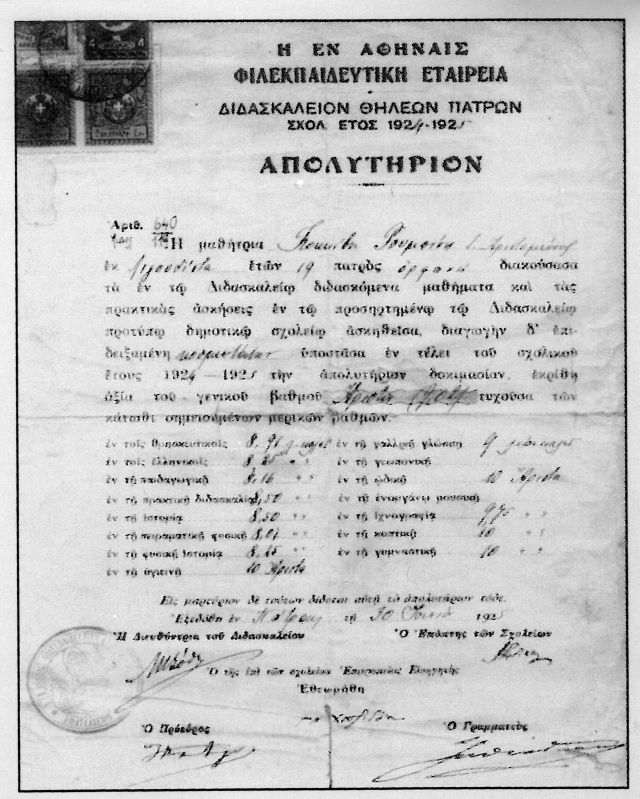 Η ΕΝ ΑΘΗΝΑΙΣ
ΦΙΛΕΚΠΑΙΔΕΥΤΙΚΗ ΕΤΑΙΡΕΙΑ
ΔΙΔΑΣΚΑΛΕΙΟΝ ΘΗΛΕΩΝ ΠΑΤΡΩΝ
ΣΧΟΛ. ΕΤΟΣ 1924-1925
ΑΠΟΛΥΤΗΡΙΟΝ
Ἀριθ. 640
Ἡ μαθήτρια
ἐκ ἐτῶν 19 πατρὸς ὀρφανὴ διακούσασα
τὰ ἐν τῷ Διδασκαλείῳ διδασκόμενα μαθήματα καὶ τὰς
πρακτικὰς ἀσκήσεις ἐν τῷ προσηρτημένῳ τῷ Διδασκαλείῳ
προτύπῳ δημοτικῷ σχολείῳ ἀσκηθεῖσα, διαγωγὴν δ' ἐπι-
δειξαμένη κοσμιωτάτην ὑποστᾶσα ἐν τέλει τοῦ σχολικοῦ
ἔτους 1924-1925 τὴν ἀπολυτήριον δοκιμασίαν, ἐκρίθη
ἀξία τοῦ γενικοῦ βαθμοῦ Ἄριστα τυχοῦσα τῶν
κάτωθι σημειουμένων μερικῶν βαθμῶν.
ἐν τοῖς θρησκευτικοῖς ἐν τῇ γαλλικῇ γλώσσῃ 9
ἐν τοῖς ἑλληνικοῖς 8.25 ἐν τῇ γεωπονικῇ
ἐν τῇ παιδαγωγικῇ 8.16 ἐν τῇ ᾠδικῇ 10 Ἄριστα
ἐν τῇ πρακτικῇ διδασκαλίᾳ 8,50 ἐν τῇ ἐνοργάνῳ μουσικῇ
ἐν τῇ ἱστορίᾳ 8.50 ἐν τῇ ἰχνογραφίᾳ 9,75
ἐν τῇ πειραματικῇ φυσικῇ ἐν τῇ κοπτικῇ 10
ἐν τῇ φυσικῇ ἱστορίᾳ ἐν τῇ γυμναστικῇ 10
ἐν τῇ ὑγιεινῇ 10 Ἄριστα
Εἰς μαρτύριον δὲ τούτων δίδοται αὐτῇ τὸ ἀπολυτήριον τόδε.
Ἐξεδόθη ἐν Πάτραις τῇ 30 192
Ἡ Διευθύντρια τοῦ Διδασκαλείου Ὁ Ἐπόπτης τῶν Σχολείων
Ὁ τῆς ἐπὶ τῶν σχολείων Ἐπιτροπείας Εἰσηγητής
Ἐθεωρήθη
Ὁ Πρόεδρος Ὁ Γραμματεὺς